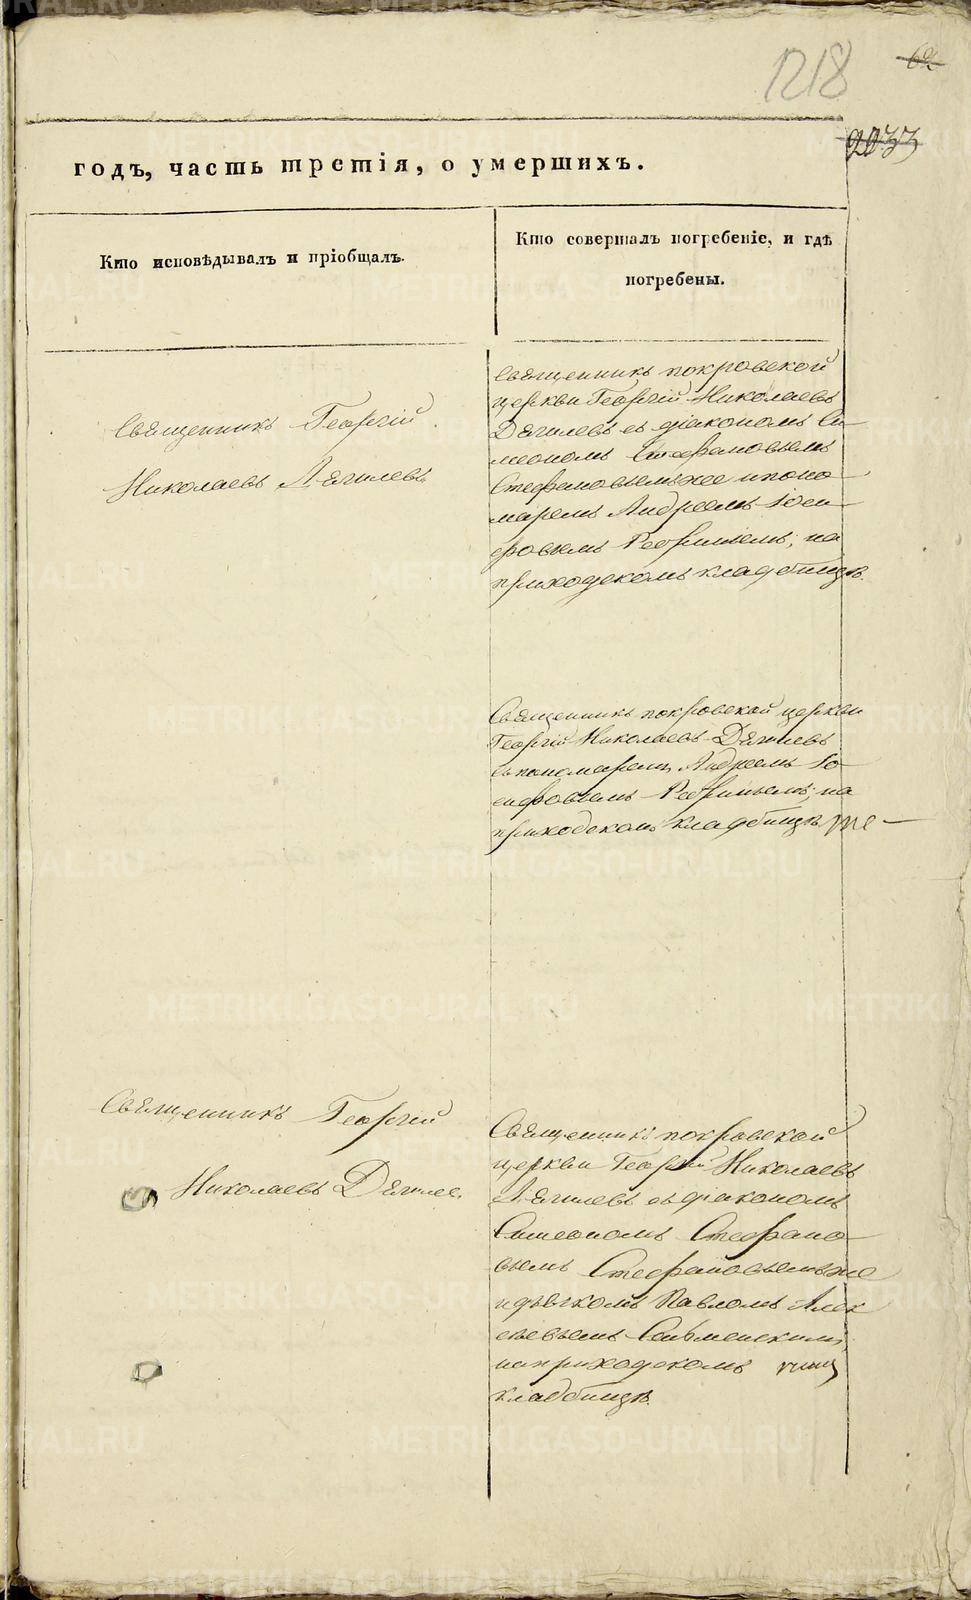 1218
2033
годъ, часть третія, о умершихъ.
Кто исповѣдывалъ и пріобщалъ.
Кто совершалъ погребеніе, и гдѣ
погребены.
Священникъ Георгій
Николаевъ Дягилевъ
Священникъ покровской
церкви Георгій Николаевъ
Дягилевъ съ діакономъ Си
меономъ Стефановымъ
Стефановымъ же и поно
маремъ Андреемъ Іоси
фовымъ
на
приходскомъ кладбищѣ.
Священникъ покровской церкви
Георгій Николаевъ Дягилевъ
съ пономаремъ Андреемъ Іо
сифовымъ
на
приходскомъ кладбищѣ
Священникъ Георгій
Николаевъ Дягилев
Священникъ покровской
церкви Георгій Николаевъ
Дягилевъ съ діакономъ
Симеономъ Стефано
вымъ Стефановымъ же
и дьячкомъ Павломъ Алек
сѣевымъ
на приходскомъ
кладбищѣ.
METRIKI.GASO-URAL.RU